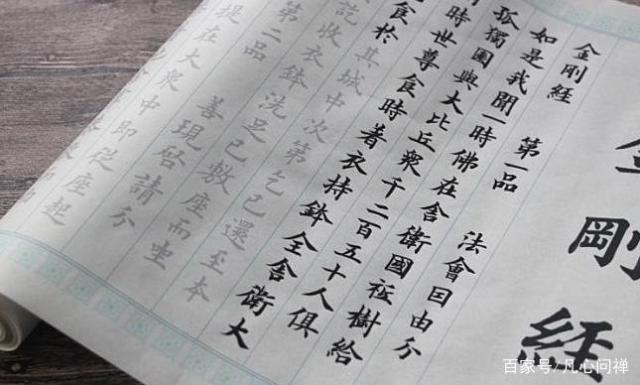 金剛經
金剛經 第一品 法會因由分
如是我聞一時佛在舍衛國祇樹給
孤獨園與大比丘眾千二百五十人俱
時世尊食時着衣持鉢入舍衛大
食於其城中次第乞已還至本
訖收衣鉢洗足已敷座而坐
第二品 善現啓請分
提在大眾中即從座起
百家号/凡心问禅